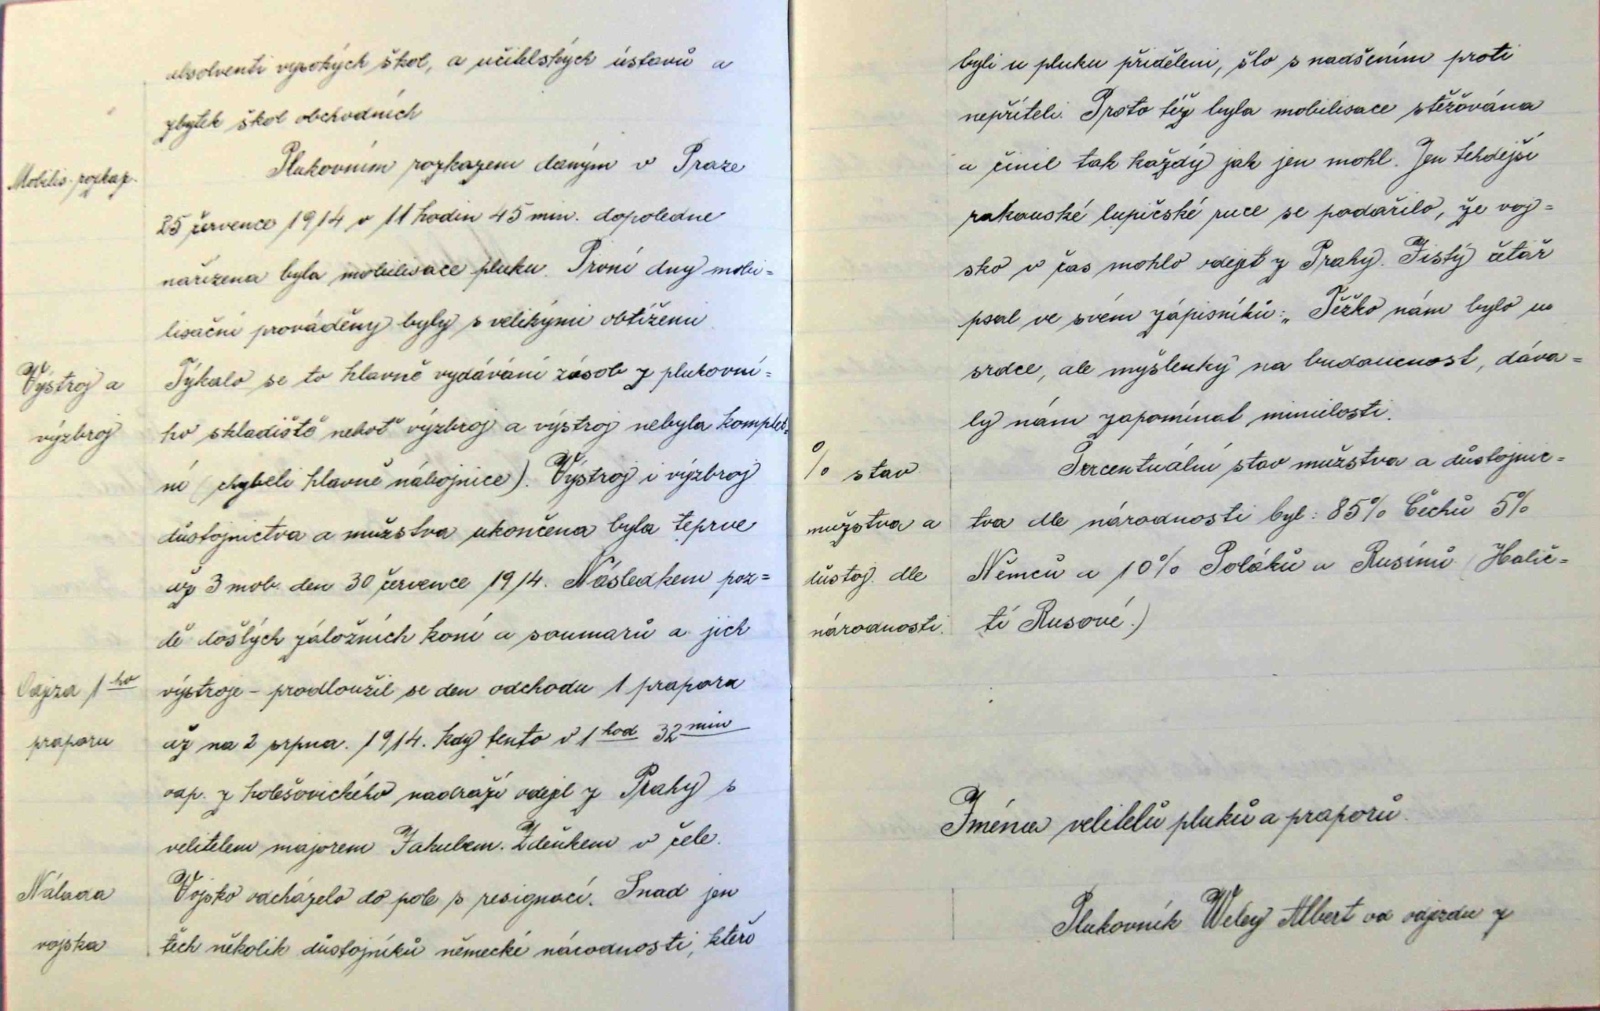 absolventi vysokých škol, a učitelských ústavů a
zbytek škol obchodních
Mobilis. rozkaz.
Plukovním rozkazem daným v Praze
25 července 1914 o 11 hodin 45 min. dopoledne
nařízena byla mobilisace pluku. První dny mobi=
lisační prováděny byly s velikými obtížemi.
Výstroj a
výzbroj
Týkalo se to hlavně vydávání zásob z plukovní=
ho skladiště neboť výzbroj a výstroj nebyla komplet=
ní (chyběli hlavně nábojnice). Výstroj i výzbroj
důstojnictva a mužstva ukončena byla teprve
až 3 mob. den 30 července 1914. Následkem poz=
dě došlých záložních koní a soumarů a jich
Odjezd 1ho
praporu
výstroje – prodloužil se den odchodu 1 praporu
až na 2 srpna. 1914. kdy tento v 1 hod 32 min
odp. z holešovického nádraží odejel z Prahy s
velitelem majorem Jakubem. Zdeňkem v čele.
Nálada
vojska
Vojsko odcházelo do pole s resignací. Snad jen
těch několik důstojníků německé národnosti, kteří
byli u pluku přiděleni, šlo s nadšením proti
nepříteli. Proto též byla mobilisace stěžována
a činil tak každý jak jen mohl. Jen tehdejší
rakouské lupičské ruce se podařilo, že voj=
sko v čas mohlo odejet z Prahy. Jistý četař
psal ve svém zápisníků: „Těžko nám bylo u
srdce, ale myšlenky na budoucnost, dáva=
ly nám zapomínat minulosti.
% stav
mužstva a
důstoj. dle
národnosti.
Percentuální stav mužstva a důstojnic=
tva dle národnosti byl: 85% Čechů 5%
Němců a 10% Poláků a Rusínů (Halič=
tí Rusové.)
Jména velitelů pluků a praporů.
Plukovník Weley Albert od odjezdu z